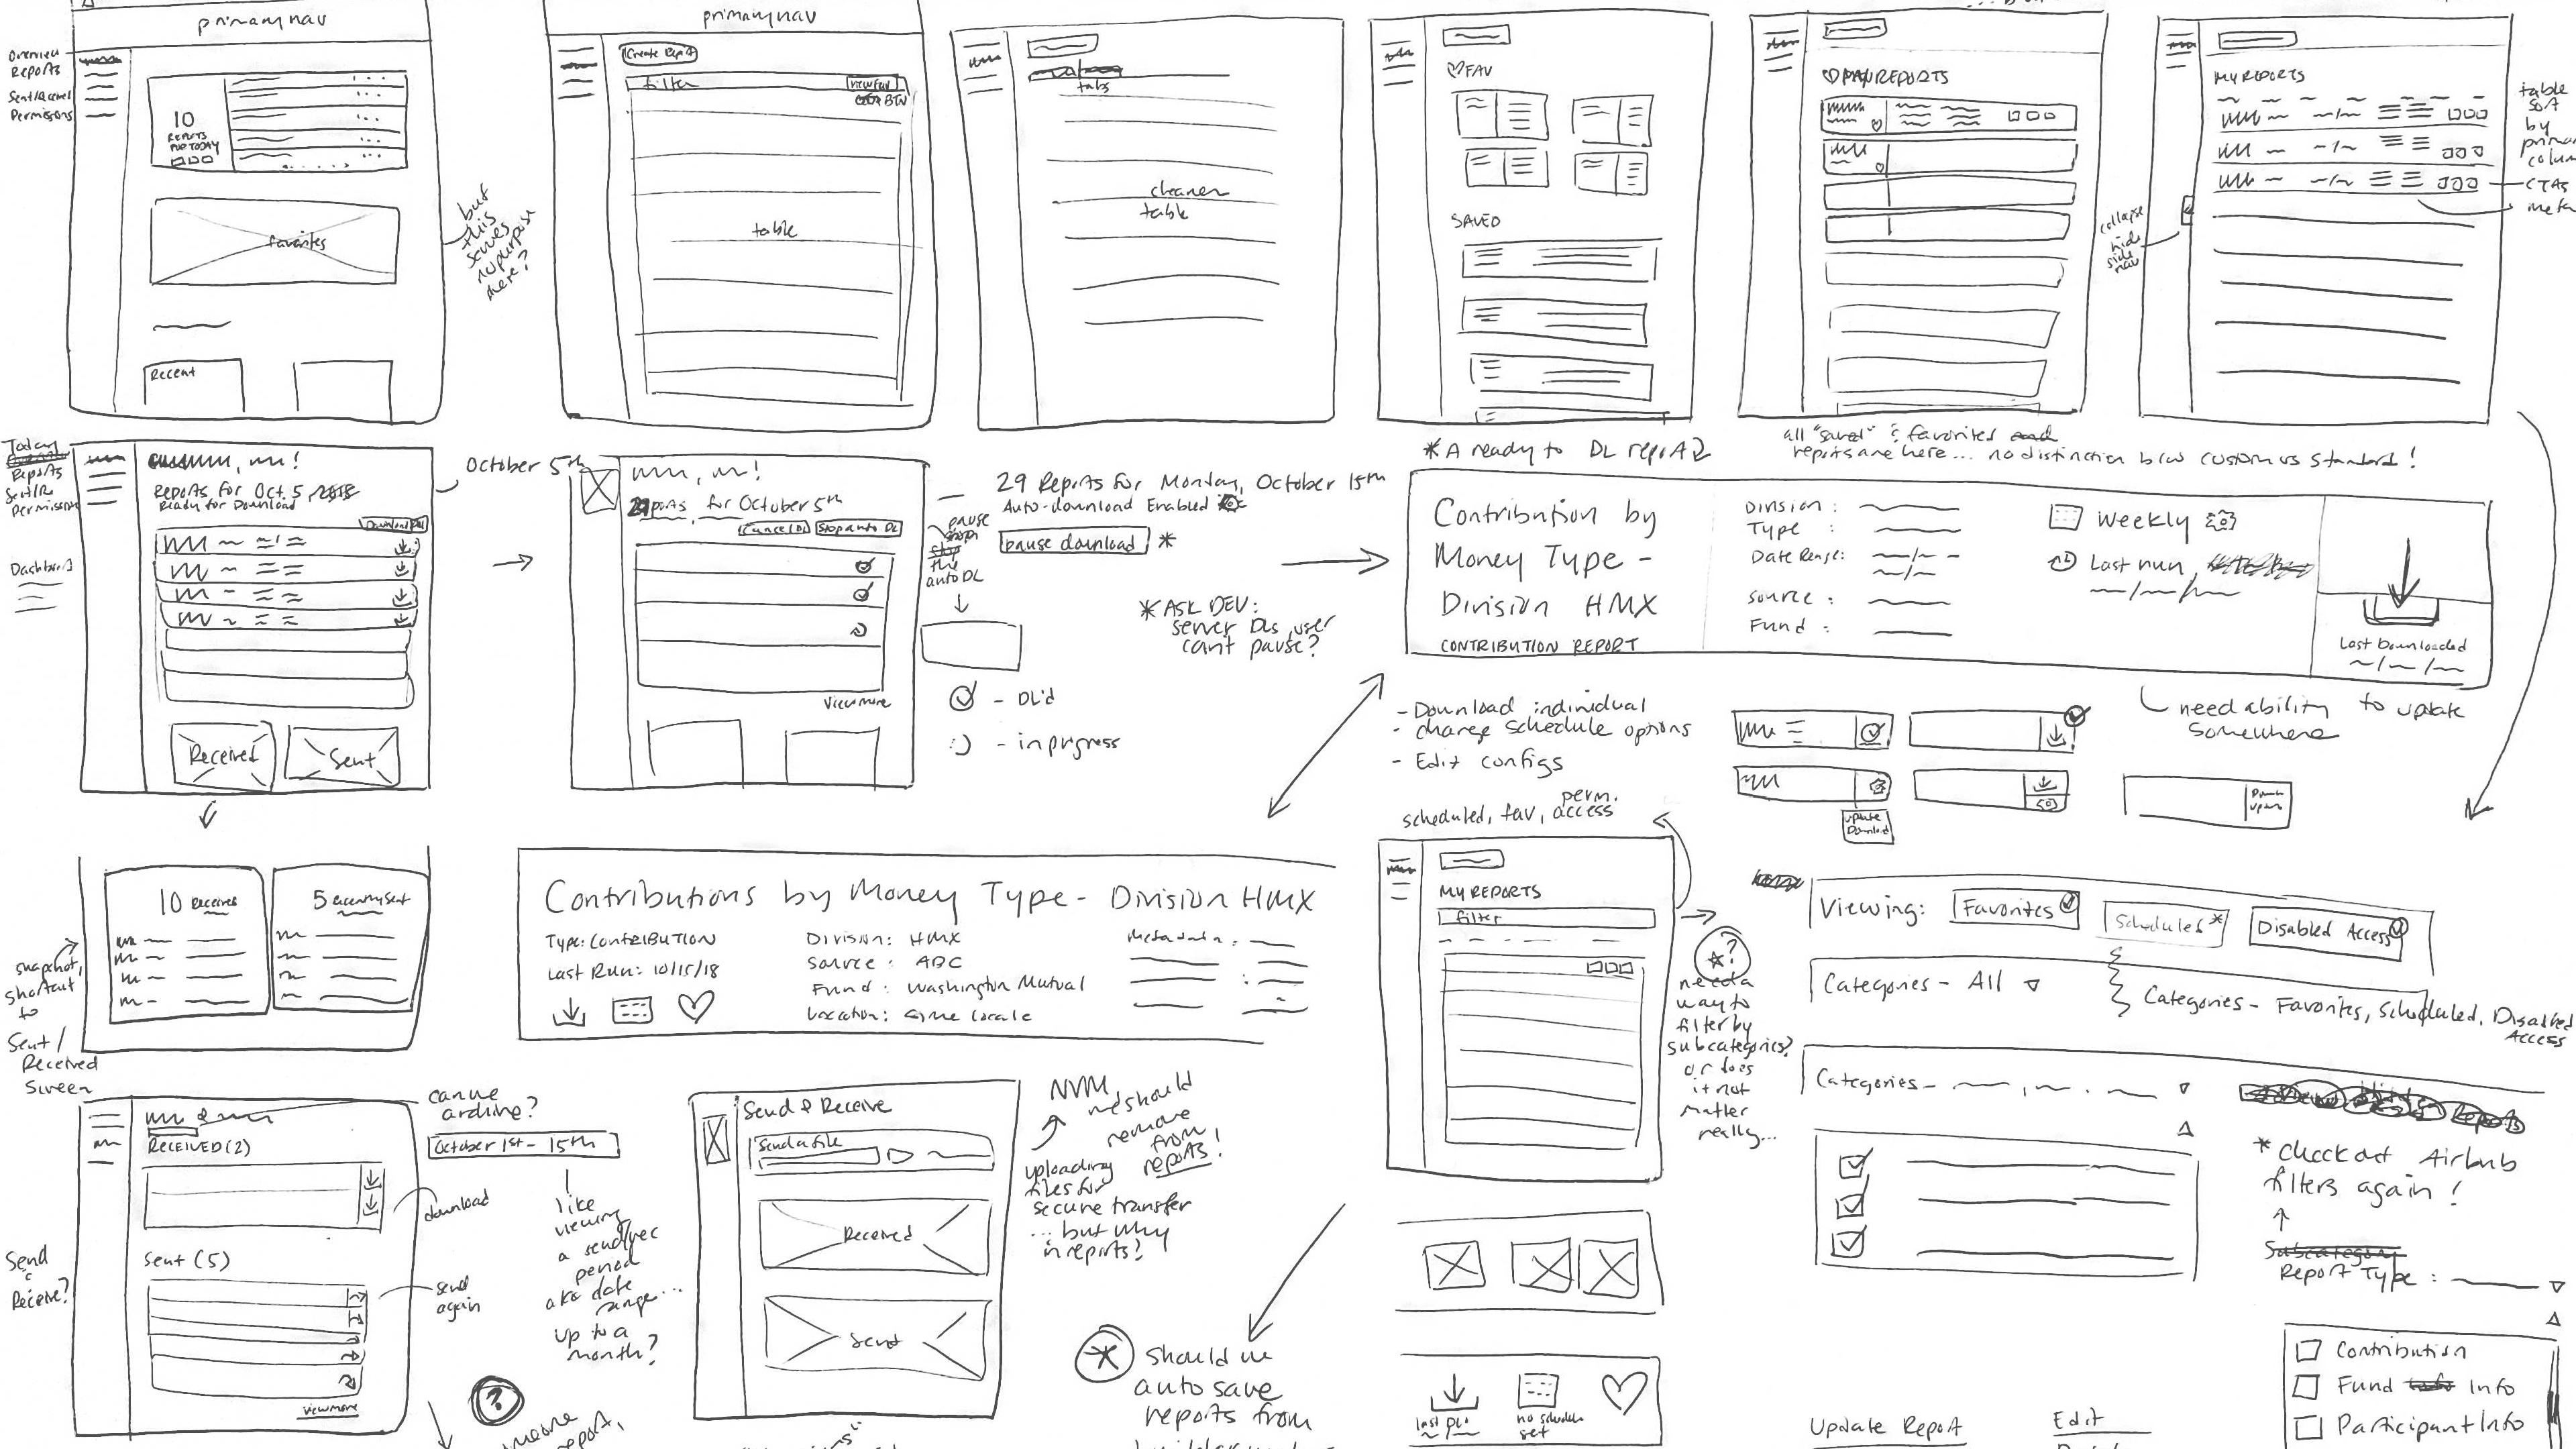 primary nav
Overview
Reports
Sent/Received
Permissions
10
REPORTS
FOR TODAY
favorites
Recent
but
this
serves
no purpose
here?
primary nav
Create Report
filter
View Fav
BTN
table
tabs
cleaner
table
FAV
SAVED
REPORTS
MY REPORTS
table
sort
by
CTAs
collapse
hide
side
nav
all "saved" & favorited
reports are here... no distinction b/w custom vs standard!
Today
Reports
Permissions
Dashboard
Reports for Oct. 5
Ready for Download
Received
Sent
October 5th
for October 5th
Cancel DL
Stop auto DL
View more
pause
the
auto DL
29 Reports for Monday, October 15th
Auto-download Enabled
pause download *
* ASK DEV:
server DLs, user
can't pause?
- DL'd
- in prgress
* A ready to DL report
Contribution by
Money Type -
Division HMX
CONTRIBUTION REPORT
Division :
Type :
Date Range:
Source :
Fund :
Weekly
Last run
Last Downloaded
need ability to update
Somewhere
- Download individual
- change schedule options
- Edit configs
update
Download
10 Received
5 recently sent
snapshot,
shortcut
to
Sent/
Received
Screen
Contributions by Money Type - Division HMX
Type: CONTRIBUTION
Last Run: 10/15/18
Division: HMX
Source : ABC
Fund : Washington Mutual
Location: Some locale
Metadata :
scheduled, fav, perm. access
MY REPORTS
filter
*?
need a
way to
filter by
subcategories?
or does
it not
matter
really...
Viewing:
Favorites
Schedules*
Disabled Access
Categories - All
Categories - Favorites, Scheduled, Disabled
Access
Categories -
* Check out Airbnb
filters again!
Subcategory
Report Type :
Contribution
Fund Info
Participant Info
RECEIVED (2)
Sent (5)
view more
Send
&
Receive?
can we
archive?
October 1st - 15th
download
send
again
like
viewing
a send/rec
period
aka date
range...
up to a
month?
?
Send & Receive
Send a file
Received
Send
NVM,
we should
remove
from
reports!
uploading
files for
secure transfer
... but why
in reports?
* should we
auto save
reports from
last DL:
no schedule
set
Update Report
Edit